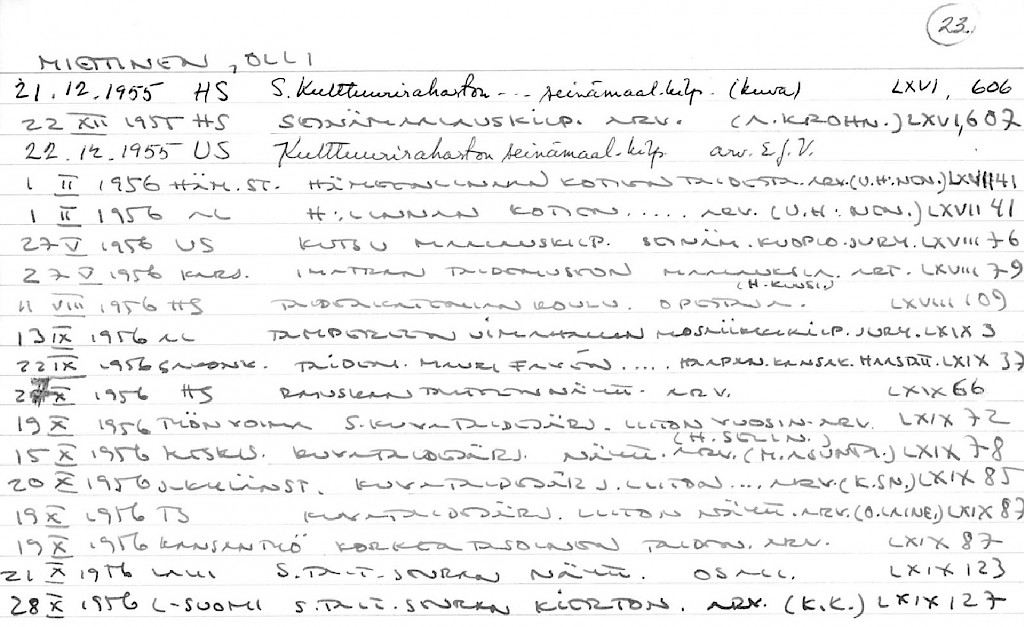 23.
MIETTINEN, OLLI
21.12.1955 HS S. Kulttuurirahaston --- seinämaal.kilp. (kuva) LXVI, 606
22 XII 1955 HS SEINÄMAALAUSKILP. ARV. (A. KROHN.) LXVI, 607
22.12.1955 US Kulttuurirahaston seinämaal.kilp. arv. E.J.V.
1 II 1956 HÄM.ST. HÄMEENLINNAN KOTIEN TAIDETTA. ARV. (U.H:NEN.) LXVII 41
1 II 1956 AL H:LINNAN KOTIEN ..... ARV. (U.H:NEN.) LXVII 41
27 V 1956 US KUTSU MAALAUSKILP. SEINÄM. KUOPIO. JURY. LXVIII 76
27 V 1956 KARJ. IMATRAN TAIDEMUSEON MAALAUKSIA. ART. LXVIII 79
(H. KUUSI)
11 VIII 1956 HS TAIDEAKATEMIAN KOULU. OPETTAJA. LXVIII 109
13 IX 1956 AL TAMPEREEN UIMAHALLIN MOSAIIKKIKILP. JURY. LXIX 3
22 IX 1956 SAVONK. TAIDEM. MAURI FAVÉN ..... HAAPAN. KANSAK. LXIX 37
27 X 1956 HS RANSKAN TAITEEN NÄYTT. ARV. LXIX 66
19 X 1956 TYÖN VOIMA S. KUVATAIDEJÄRJ. LIITON VUOSIN. ARV. LXIX 72
(H. SELIN.)
15 X 1956 KESKIS. KUVATAIDEJÄRJ. NÄYTT. ARV. (M. ASUNTA.) LXIX 78
20 X 1956 J-KYLÄNST. KUVATAIDEJÄRJ. LIITON .... ARV. (K.SN.) LXIX 85
19 X 1956 TS KUVATAIDEJÄRJ. LIITON NÄYTT. ARV. (O. LAINE.) LXIX 87
19 X 1956 KANSAN TYÖ KORKEATASOINEN TAIDEN. ARV. LXIX 87
21 X 1956 LALLI S. TAIT-SEURAN NÄYTT. OSALL. LXIX 123
28 X 1956 L-SUOMI S. TAIT-SEURAN KIERTON. ARV. (K.K.) LXIX 127